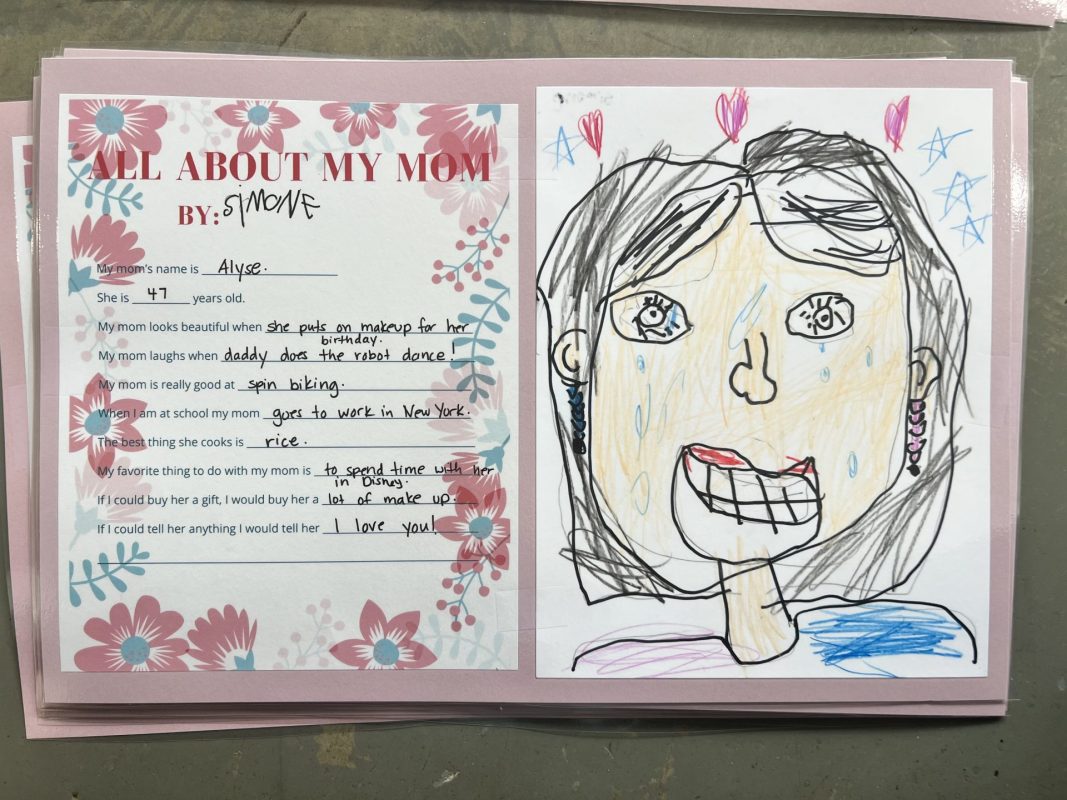 ALL ABOUT MY MOM
BY: SiMONE
My mom's name is Alyse.
She is 47 years old.
My mom looks beautiful when she puts on makeup for her
birthday.
My mom laughs when daddy does the robot dance!
My mom is really good at spin biking.
When I am at school my mom goes to work in New York.
The best thing she cooks is rice.
My favorite thing to do with my mom is to spend time with her
in Disney.
If I could buy her a gift, I would buy her a lot of make up.
If I could tell her anything I would tell her I love you!